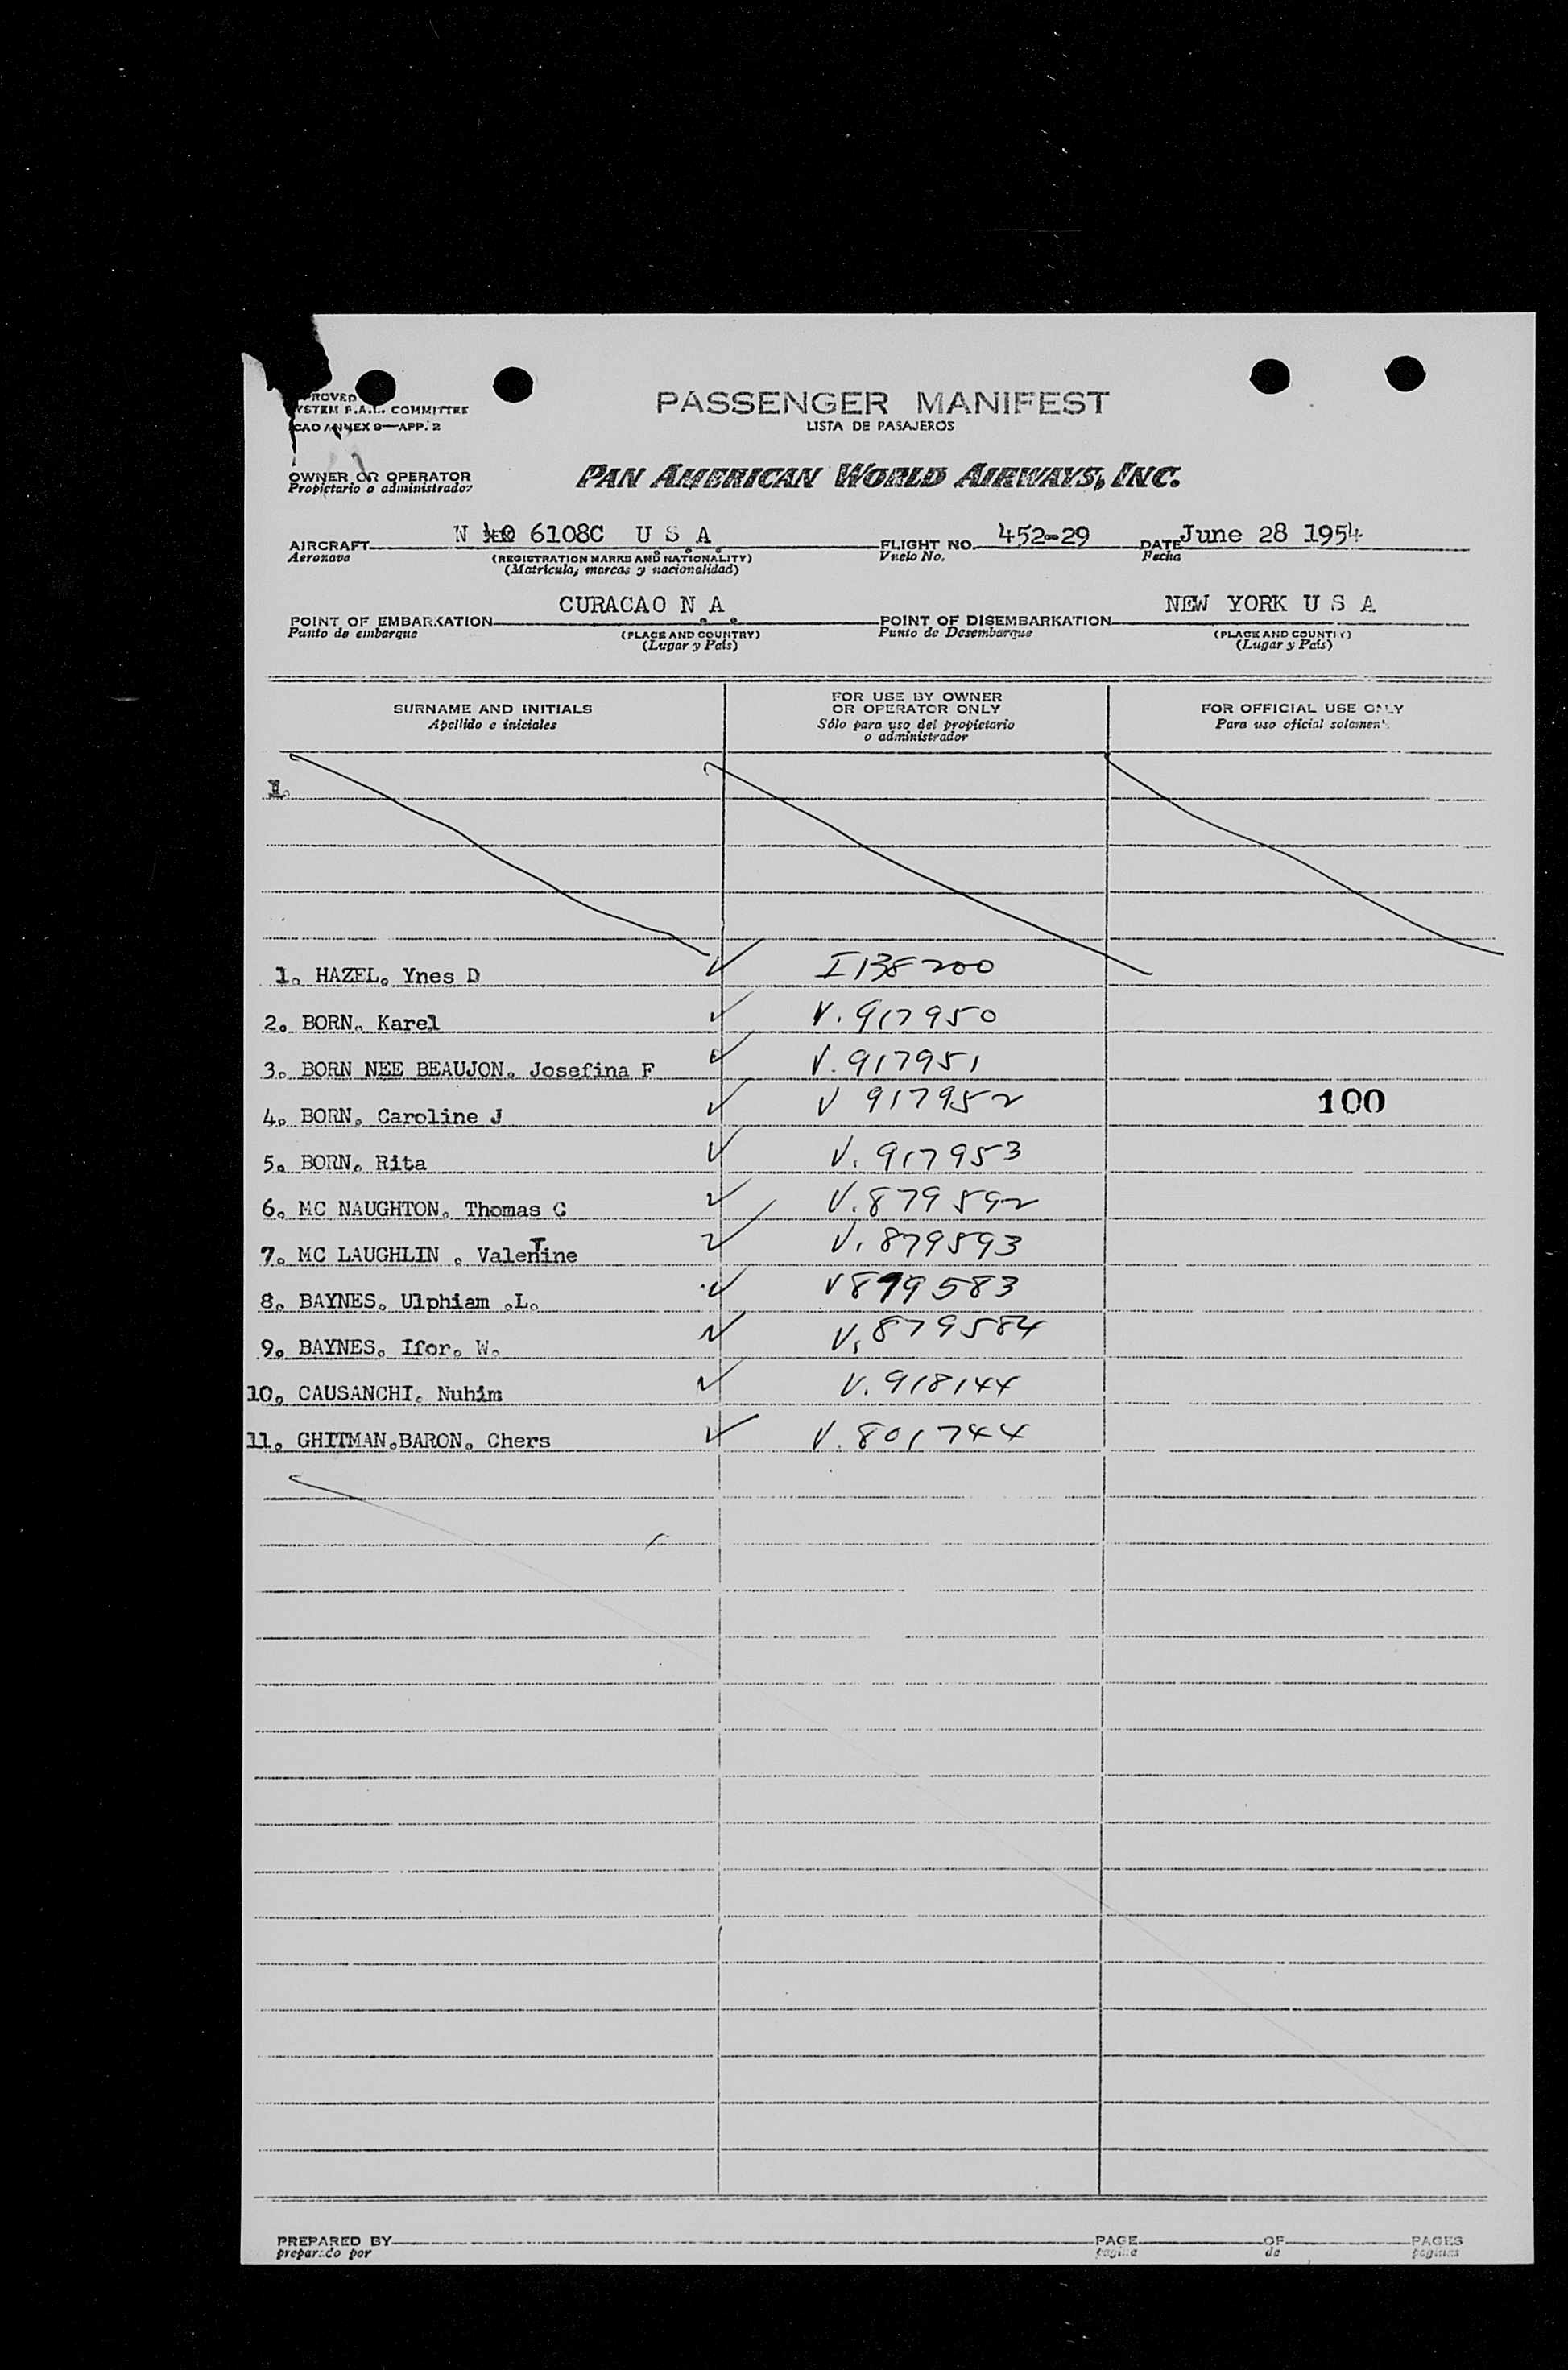 PROVED
YSTEM F.A.L. COMMITTEE
CAO ANNEX 9—APP. 2
PASSENGER MANIFEST
LISTA DE PASAJEROS
OWNER OR OPERATOR
Propietario o administrador
PAN AMERICAN WORLD AIRWAYS, INC.
AIRCRAFT N 6108C U.S.A. FLIGHT NO. 452-29 DATE June 28 1954
Aeronave (REGISTRATION MARKS AND NATIONALITY) Vuelo No. Fecha
(Matrícula, marcas y nacionalidad)
POINT OF EMBARKATION CURACAO N.A. POINT OF DISEMBARKATION NEW YORK U S A
Punto de embarque (PLACE AND COUNTRY) Punto de Desembarque (PLACE AND COUNTRY)
(Lugar y País) (Lugar y País)
SURNAME AND INITIALS FOR USE BY OWNER OR OPERATOR ONLY FOR OFFICIAL USE ONLY
Apellido e iniciales Sólo para uso del propietario o administrador Para uso oficial solament
1.
1. HAZEL. Ynes D I138200
2. BORN. Karel V. 917950
3. BORN NEE BEAUJON. Josefina F V. 917951
4. BORN. Caroline J V 917952 100
5. BORN. Rita V. 917953
6. MC NAUGHTON. Thomas C V. 879592
7. MC LAUGHLIN . Valentine V. 879593
8. BAYNES. Ulphiam .L. V 879583
9. BAYNES. Ifor. W. V. 879584
10. CAUSANCHI. Nuhim V. 918144
11. GHITMAN.BARON. Chers V. 801744
PREPARED BY PAGE OF PAGES
preparado por página de páginas